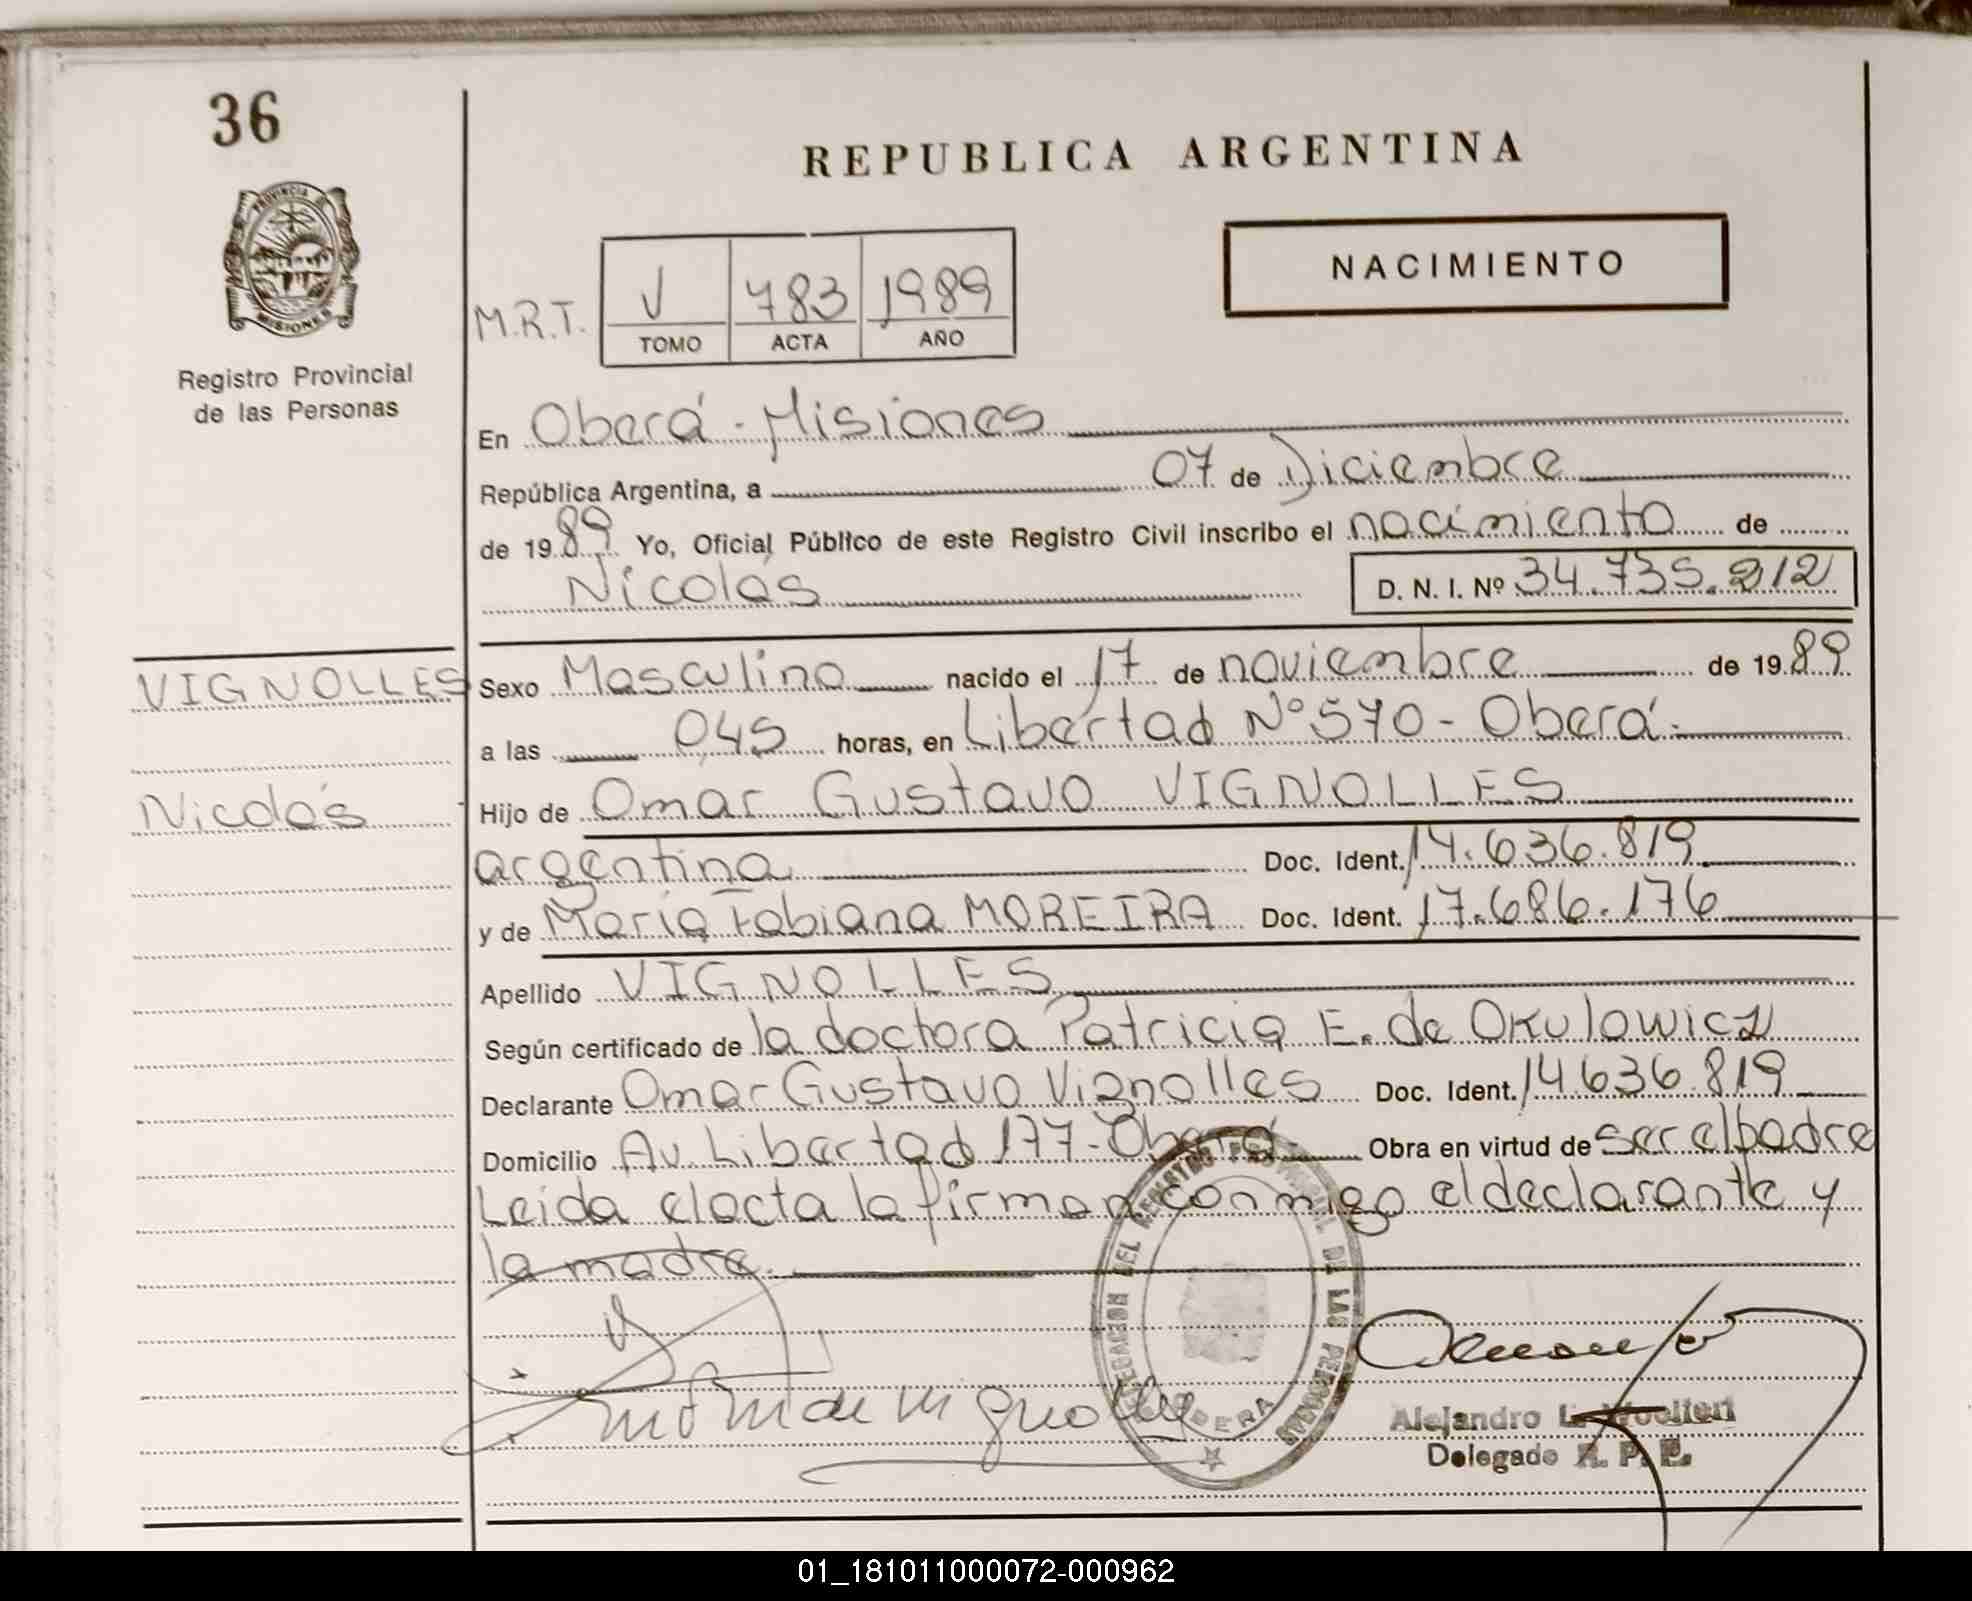 36
REPUBLICA ARGENTINA
PROVINCIA
MISIONES
Registro Provincial
de las Personas
NACIMIENTO
M.R.T. V 783 1989
TOMO ACTA AÑO
En Oberá - Misiones
República Argentina, a 07 de Diciembre
de 1989 Yo, Oficial Público de este Registro Civil inscribo el nacimiento de
Nicolás D. N. I. Nº 34.735.212
VIGNOLLES
Nicolás
Sexo Masculino nacido el 17 de noviembre de 1989
a las 0,45 horas, en Libertad Nº 570 - Oberá.
Hijo de Omar Gustavo VIGNOLLES
argentina Doc. Ident. 14.636.819
y de María Fabiana MOREIRA Doc. Ident. 17.686.176
Apellido VIGNOLLES
Según certificado de la doctora Patricia E. de Okulowicz
Declarante Omar Gustavo Vignolles Doc. Ident. 14.636.819
Domicilio Av. Libertad 177 - Oberá - Obra en virtud de ser el padre
Leída el acta la firman conmigo el declarante y
la madre.
DELEGACION DEL REGISTRO PROVINCIAL DE LAS PERSONAS
OBERA
Alejandro L.
Delegado R. P. P.
01_181011000072-000962